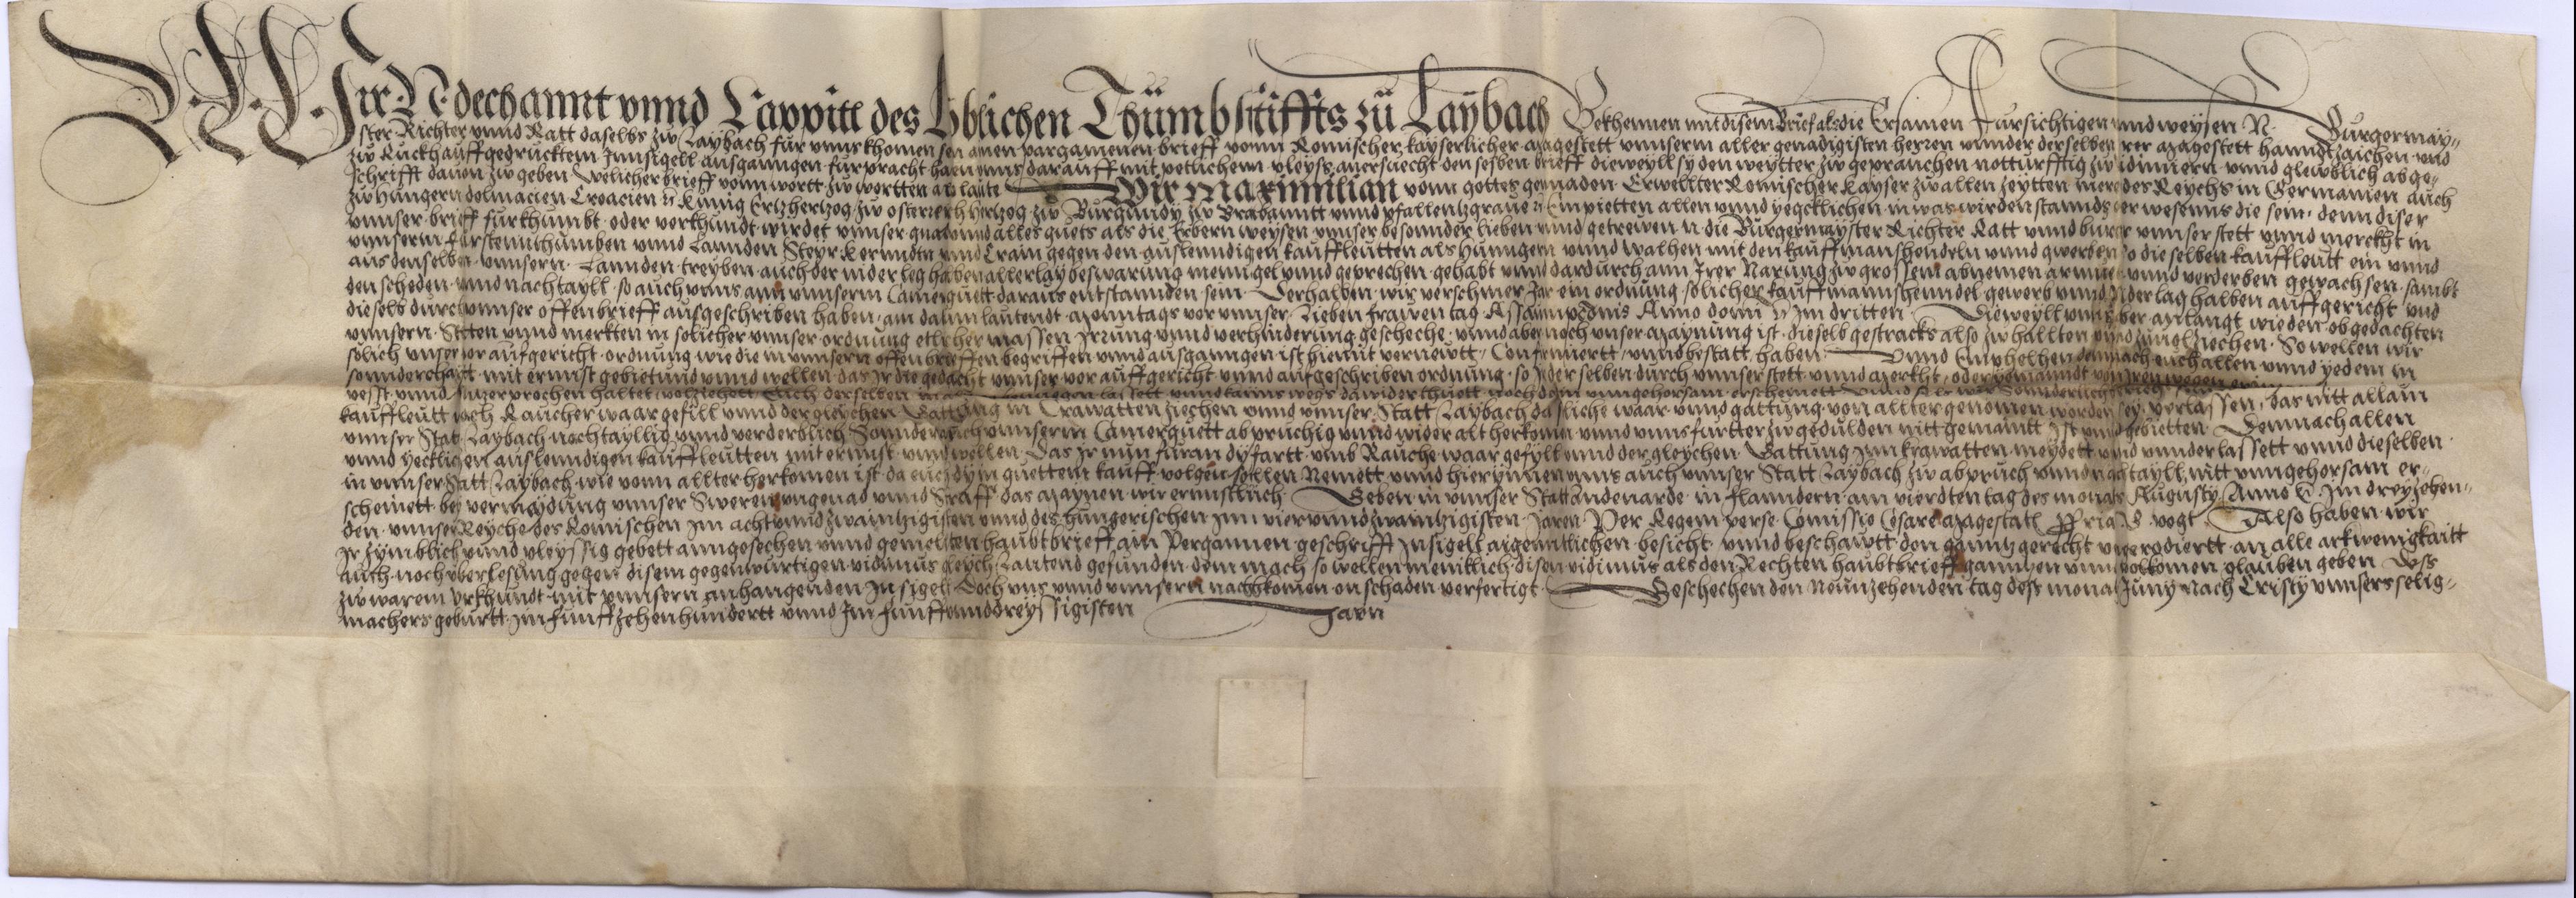 Wir N dechannt vnnd Cappitl des löblichen Thümbstiffts zü Laÿbach Bekhennen mit disem Brief als die Ersamen Fursichtigen vnnd weysen N. Burgermay-
ster Richter vnnd Ratt daselbs zw Laybach für vnns khomen sen ainen pargamenen brieff vonn Romischer kayserlicher magestett vnnserm aller genadigisten herren vnnder derselben irer magestett hanndtzaichen vnd
zw Ruckhauff gedrucktem Innsigell ausganngen fürpracht haben vnns darauff mit petlichem vleyss anersuecht den selben brieff dieweyll sy den weytter zw geprauchen notturfftig zw vidimiern vnnd glewblich abge-
schrifft dauon zw geben Welicher brieff vonn wortt zw wortten also laute Wir Maximilian vonn gottes genaden Erwellter Romischer Kayser zw allen zeytten merer des Reychs in Germanien auch
zw Hungern dolmacien Croacien &c Kunig Ertzhertzog zw osterreych hertzog zw Burgundy zw Brabanntt vnnd pfalllentzgraue &c Empietten allen vnnd yegcklichen in was wirden stannds oder wesenns die sein denn diser
vnnser brieff fürkhumbt oder verkhundt wirdet vnnser gnad vnnd alles guets als die Erbern weysen vnnser besonnder lieben vnnd getrewen n die Burgermayster Richter Ratt vnnd burger vnnser stett vnnd merckht in
vnnserm fürstennthumben vnnd Lannden Steyr Kernndtn vnnd Crain gegen den auslenndigen kauffleutten als Hunngern vnnd walhen mit den kauffmanshendeln vnnd gwerben so dieselben kauffleutt ein vnnd
aus denselben vnnsern Lannden treyben auch der niderleg halben allerlay beswarung menngel vnnd gebrechen gehabt vnnd dardurch ann Irer Narung zw grossem abnemen armuet vnnd verderben gewachsen sambt
den scheden vnnd nachtayll so auch vnns ann vnnserm Camerguett daraus entstannden sein Derhalben wir verschiner Jar ein ordnung solicher kauffmannshenndel gewerb vnnd Niderlag halben auffgericht vnd
dieselb durch vnnser offen brieff ausgeschriben haben am datum lautendt Monntags vor vnnser Lieben frawen tag Assumpcionis Anno domi &c Im dritten Dieweyll vnns aber anlangt wie den obgedachten
vnnsern Stetten vnnd merkten in solicher vnnser ordnung etlicher massen Irrung vnnd verhinderung gescheche vnnd aber noch vnnser maynung ist dieselb gestracks also zw hallten vnnd zuuolziechen So wellen wir
solich vnnser vor aufgericht ordnung wie die in vnnsern offen brieffen begriffen vnnd ausganngen ist hiemit vernewtt Confirmiertt vnnd bestatt haben Vnnd Emphelhen demnach euch allen vnnd yedem in
sonnderchaytt mit ernnst gebietund vnnd wellen das Ir die gedacht vnnser vor auffgericht vnnd aufgeschriben ordnung so Ir der selben durch vnnser stett vnnd merkht oder yemanndt von Iren wegen
vesst vnnd vnnzerprochen halltet volziehett
kauffleutt vmb Raucher waar gefill vnnd dergleychen Gattung in Crawatten ziechen vnnd vnnser Statt Laybach da sliche waar vnnd gattung von allter genomen worden sey verlassen das nitt allain
vnnser Stat Laybach nochtayllig vnnd verderblich Sonnder auch vnnserm Camerguett abpruchig vnnd wider alt herkomen vnnd vnns furtter zw gedulden nitt gemaintt Ist vnnd gebietten Demnach allen
vnnd yecklichen auslenndigen kauffleutten mit ernnst vnnd wellen Das Ir nun füran dy fartt vmb Rauche waar gefyll vnnd dergleychen Gattung Inn krawatten meydett vnnd vnnderlassett vnnd dieselben
in vnnser Statt Laybach wie vonn allter herkomen ist da euch dy in guettem kauff volgen sollen Nemett vnnd hierynnen vnns auch vnnser Statt Laybach zw abpruch vnnd nachtayll nitt vnngehorsam er-
scheinett bey vermeydung vnnser Sweren vngenad vnnd Straff das maynen wir ernnstlich Geben in vnnser Statt Andenarde in flanndern am vierdten tag des monats Augusty Anno &c Im dreyzehen-
den vnnser Reyche des Romischen Im acht vnnd zwaintzigisten vnnd des hungerischen Inn vier vnnd zwaintzigisten Jaren Per Regem perse Comissio Cesaree magestatis ppria S. vogt Also haben wir
Ir zymblich vnnd vleyssig gebett anngesechen vnnd gemelten haubtbrieff am Pergamen geschrifft Insigell aigenntlichen besicht vnnd beschawtt den ganntz gerecht vnnerodiertt an alle arkwenigkaitt
auch noch vberlesung gegen disem gegenwürtigen vidimus gleych Lautend gefunden dem nach so wellen menklich disen vidimus als den Rechten haubtbrieff ganntzen vnnd volkomen glauben geben Dess
zw warem Vrkhundt mit vnnsern anhangenden Insigell Doch vns vnnd vnnsern nachkomen on schaden verfertigt Beschechen den Neunzehenden tag dess monats Juny nach Cristy vnnsers selig-
machers geburtt Im funffzehenhundertt vnnd Im funffvnnddreyssigisten Jarn